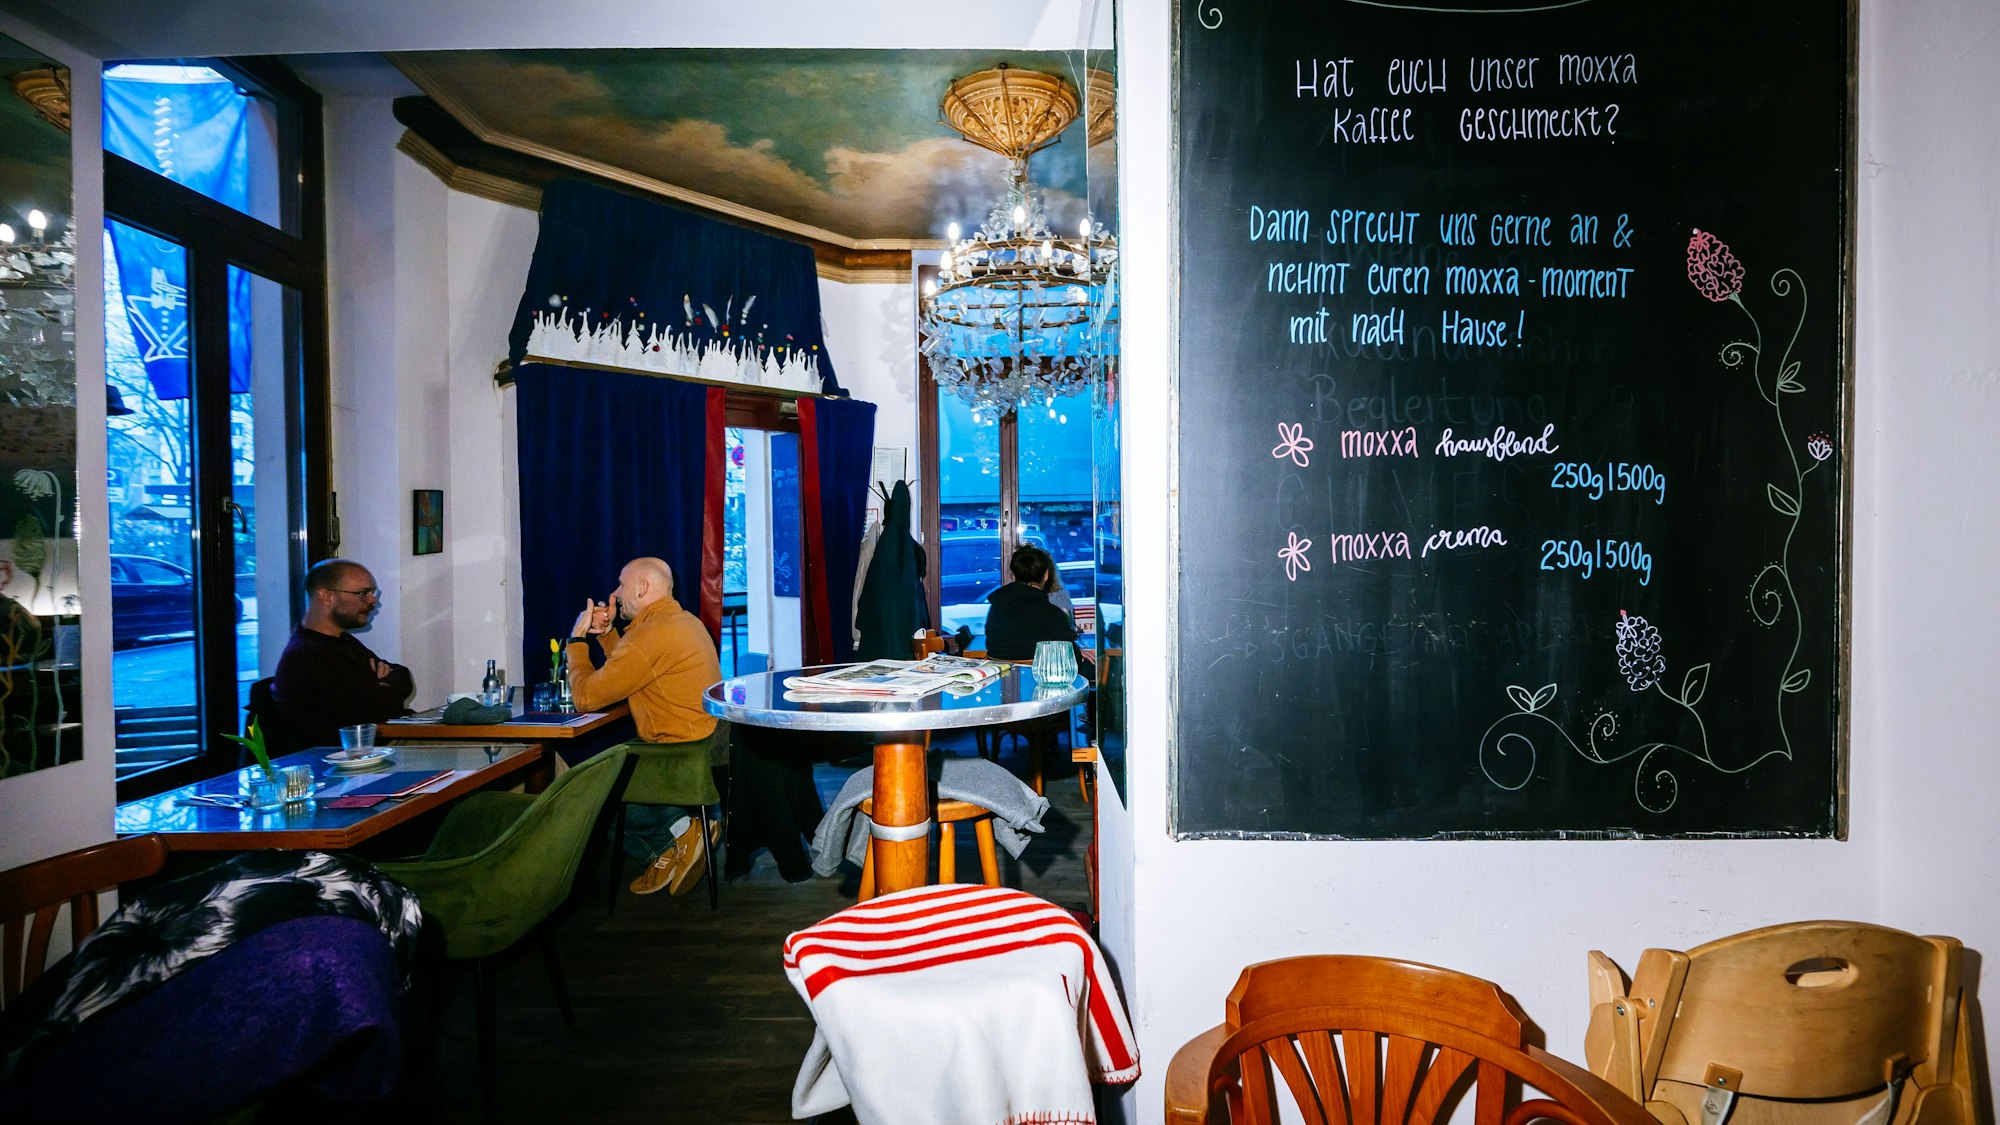 Hat euch unser moxxa
Kaffee geschmeckt?
Dann sprecht uns gerne an &
nehmt euren moxxa-moment
mit nach Hause!
moxxa hausblend
250g|500g
moxxa crema
250g|500g
Begleitung